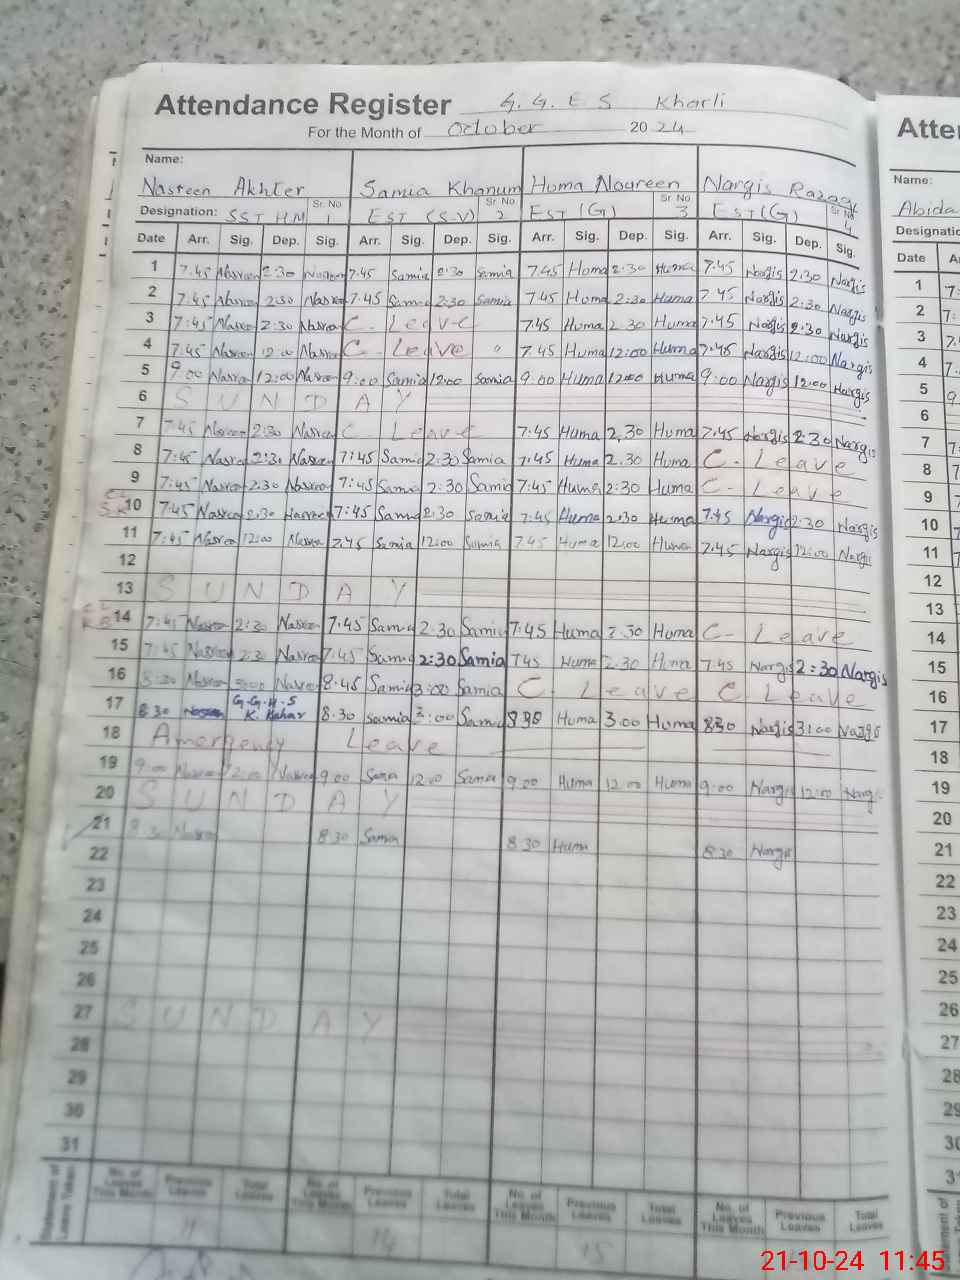 Attendance Register G.G.E.S Kharli
For the Month of October 2024
Name:
Nasreen Akhter Samia Khanum Huma Noureen Nargis Razaq
Designation: SST HM Sr No 1 EST (S-V) Sr No 2 EST (G) Sr No 3 EST (G) Sr No 4
Date Arr. Sig. Dep. Sig. Arr. Sig. Dep. Sig. Arr. Sig. Dep. Sig. Arr. Sig. Dep. Sig.
1 7.45 Nasreen 2:30 Nasreen 7.45 Samia 2:30 Samia 7.45 Huma 2:30 Huma 7.45 Nargis 2.30 Nargis
2 7:45 Nasreen 2:30 Nasreen 7.45 Samia 2:30 Samia 7.45 Huma 2:30 Huma 7.45 Nargis 2:30 Nargis
3 7:45 Nasreen 2:30 Nasreen C. Leave 7.45 Huma 2.30 Huma 7.45 Nargis 2.30 Nargis
4 7.45 Nasreen 12:00 Nasreen C. Leave " 7.45 Huma 12:00 Huma 7.45 Nargis 12:00 Nargis
5 9:00 Nasreen 12:00 Nasreen 9:00 Samia 12:00 Samia 9:00 Huma 12:00 Huma 9:00 Nargis 12:00 Nargis
6 SUNDAY
7 7.45 Nasreen 2:30 Nasreen C. Leave 7:45 Huma 2.30 Huma 7.45 Nargis 2:30 Nargis
8 7:45 Nasreen 2:30 Nasreen 7:45 Samia 2:30 Samia 7.45 Huma 2.30 Huma C. Leave
9 7:45 Nasreen 2.30 Nasreen 7:45 Samia 2:30 Samia 7:45 Huma 2:30 Huma C. Leave
10 7:45 Nasreen 2:30 Nasreen 7:45 Samia 2:30 Samia 7:45 Huma 2:30 Huma 7.45 Nargis 2:30 Nargis
11 7:45 Nasreen 12:00 Nasreen 7.45 Samia 12:00 Samia 7.45 Huma 12:00 Huma 7.45 Nargis 12:00 Nargis
12
13 SUNDAY
14 7:45 Nasreen 2:30 Nasreen 7:45 Samia 2:30 Samia 7:45 Huma 2.30 Huma C- Leave
15 7:45 Nasreen 2:30 Nasreen 7:45 Samia 2:30 Samia 7.45 Huma 2.30 Huma 7.45 Nargis 2:30 Nargis
16 8:30 Nasreen 3:00 Nasreen 8:45 Samia 3:00 Samia C. Leave C. Leave
17 8.30 Nasreen G.G.H.S K. Kahar 8.30 Samia 3:00 Samia 8.30 Huma 3.00 Huma 8.30 Nargis 3:00 Nargis
18 Amergency Leave
19 9:00 Nasreen 12:00 Nasreen 9:00 Samia 12:00 Samia 9:00 Huma 12:00 Huma 9:00 Nargis 12:00 Nargis
20 SUNDAY
21 8:30 Nasreen 8.30 Samia 8.30 Huma 8.30 Nargis
22
23
24
25
26
27 SUNDAY
28
29
30
31
Statement of Leaves Taken
No. of Leaves This Month Previous Leaves Total Leaves No. of Leaves This Month Previous Leaves Total Leaves No. of Leaves This Month Previous Leaves Total Leaves No. of Leaves This Month Previous Leaves Total Leaves
11 14 15
Atte
Name:
Abida
Designatio
Date A
1 7:
2 7:
3 7.
4 7.
5 9
6
7 7
8
9
10
11
12
13
14
15
16
17
18
19
20
21
22
23
24
25
26
27
28
29
30
21-10-24 11:45